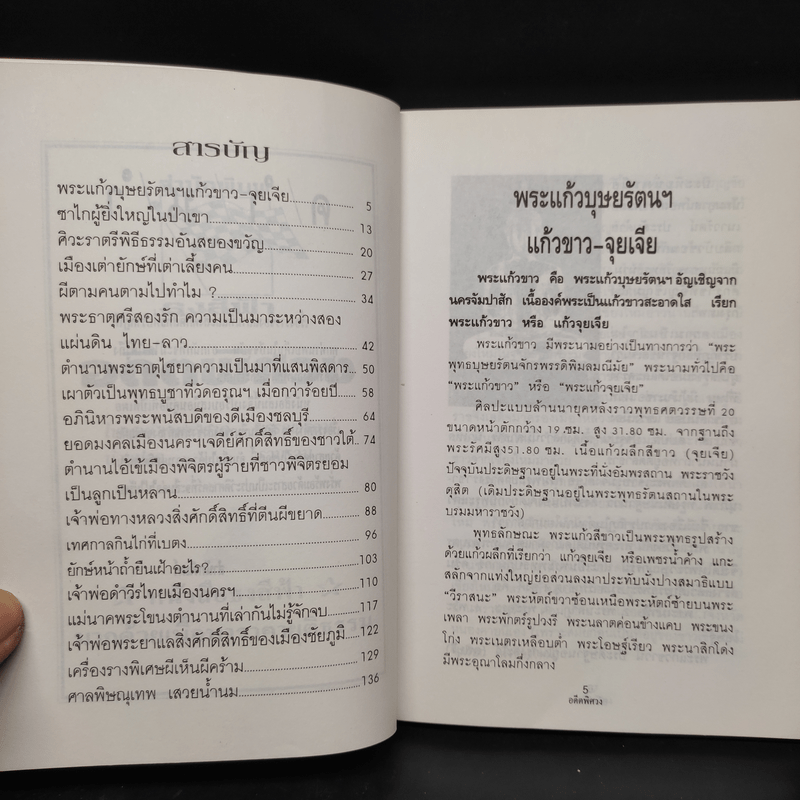 สารบัญ
พระแก้วบุษยรัตนฯแก้วขาว-จุยเจีย 5
ซาไกผู้ยิ่งใหญ่ในป่าเขา 13
ศิวะราตรีพิธีธรรมอันสยองขวัญ 20
เมืองเต่ายักษ์ที่เต่าเลี้ยงคน 27
ผีตามคนตามไปทำไม ? 34
พระธาตุศรีสองรัก ความเป็นมาระหว่างสอง
แผ่นดิน ไทย-ลาว 42
ตำนานพระธาตุไชยาความเป็นมาที่แสนพิสดาร 50
เผาตัวเป็นพุทธบูชาที่วัดอรุณฯ เมื่อกว่าร้อยปี 58
อภินิหารพระพนัสบดีของดีเมืองชลบุรี 64
ยอดมงคลเมืองนครฯเจดีย์ศักดิ์สิทธิ์ของชาวใต้ 74
ตำนานไอ้เข้เมืองพิจิตรผู้ร้ายที่ชาวพิจิตรยอม
เป็นลูกเป็นหลาน 80
เจ้าพ่อทางหลวงสิ่งศักดิ์สิทธิ์ที่ตีนผีขยาด 88
เทศกาลกินไก่ที่เบตง 96
ยักษ์หน้าถ้ำยืนเฝ้าอะไร? 103
เจ้าพ่อดำวีรไทยเมืองนครฯ 110
แม่นาคพระโขนงตำนานที่เล่ากันไม่รู้จักจบ 117
เจ้าพ่อพระยาแลสิ่งศักดิ์สิทธิ์ของเมืองชัยภูมิ 122
เครื่องรางพิเศษผีเห็นผีคร้าม 129
ศาลพิษณุเทพ เสวยน้ำนม 136
พระแก้วบุษยรัตนฯ
แก้วขาว-จุยเจีย
พระแก้วขาว คือ พระแก้วบุษยรัตนฯ อัญเชิญจาก
นครจัมปาสัก เนื้อองค์พระเป็นแก้วขาวสะอาดใส เรียก
พระแก้วขาว หรือ แก้วจุยเจีย
พระแก้วขาว มีพระนามอย่างเป็นทางการว่า "พระ
พุทธบุษยรัตนจักรพรรดิพิมลมณีมัย" พระนามทั่วไปคือ
"พระแก้วขาว" หรือ "พระแก้วจุยเจีย"
ศิลปะแบบล้านนายุคหลังราวพุทธศตวรรษที่ 20
ขนาดหน้าตักกว้าง 19.ซม. สูง 31.80 ซม. จากฐานถึง
พระรัศมีสูง51.80 ซม. เนื้อแก้วผลึกสีขาว (จุยเจีย)
ปัจจุบันประดิษฐานอยู่ในพระที่นั่งอัมพรสถาน พระราชวัง
ดุสิต (เดิมประดิษฐานอยู่ในพระพุทธรัตนสถานในพระ
บรมมหาราชวัง)
พุทธลักษณะ พระแก้วสีขาวเป็นพระพุทธรูปสร้าง
ด้วยแก้วผลึกที่เรียกว่า แก้วจุยเจีย หรือเพชรน้ำค้าง แกะ
สลักจากแท่งใหญ่ย่อส่วนลงมาประทับนั่งปางสมาธิแบบ
"วีราสนะ" พระหัตถ์ขวาซ้อนเหนือพระหัตถ์ซ้ายบนพระ
เพลา พระพักตร์รูปวงรี พระนลาตค่อนข้างแคบ พระขนง
โก่ง พระเนตรเหลือบต่ำ พระโอษฐ์เรียว พระนาสิกโด่ง
มีพระอุณาโลมกึ่งกลาง
5
อดีตพิศวง